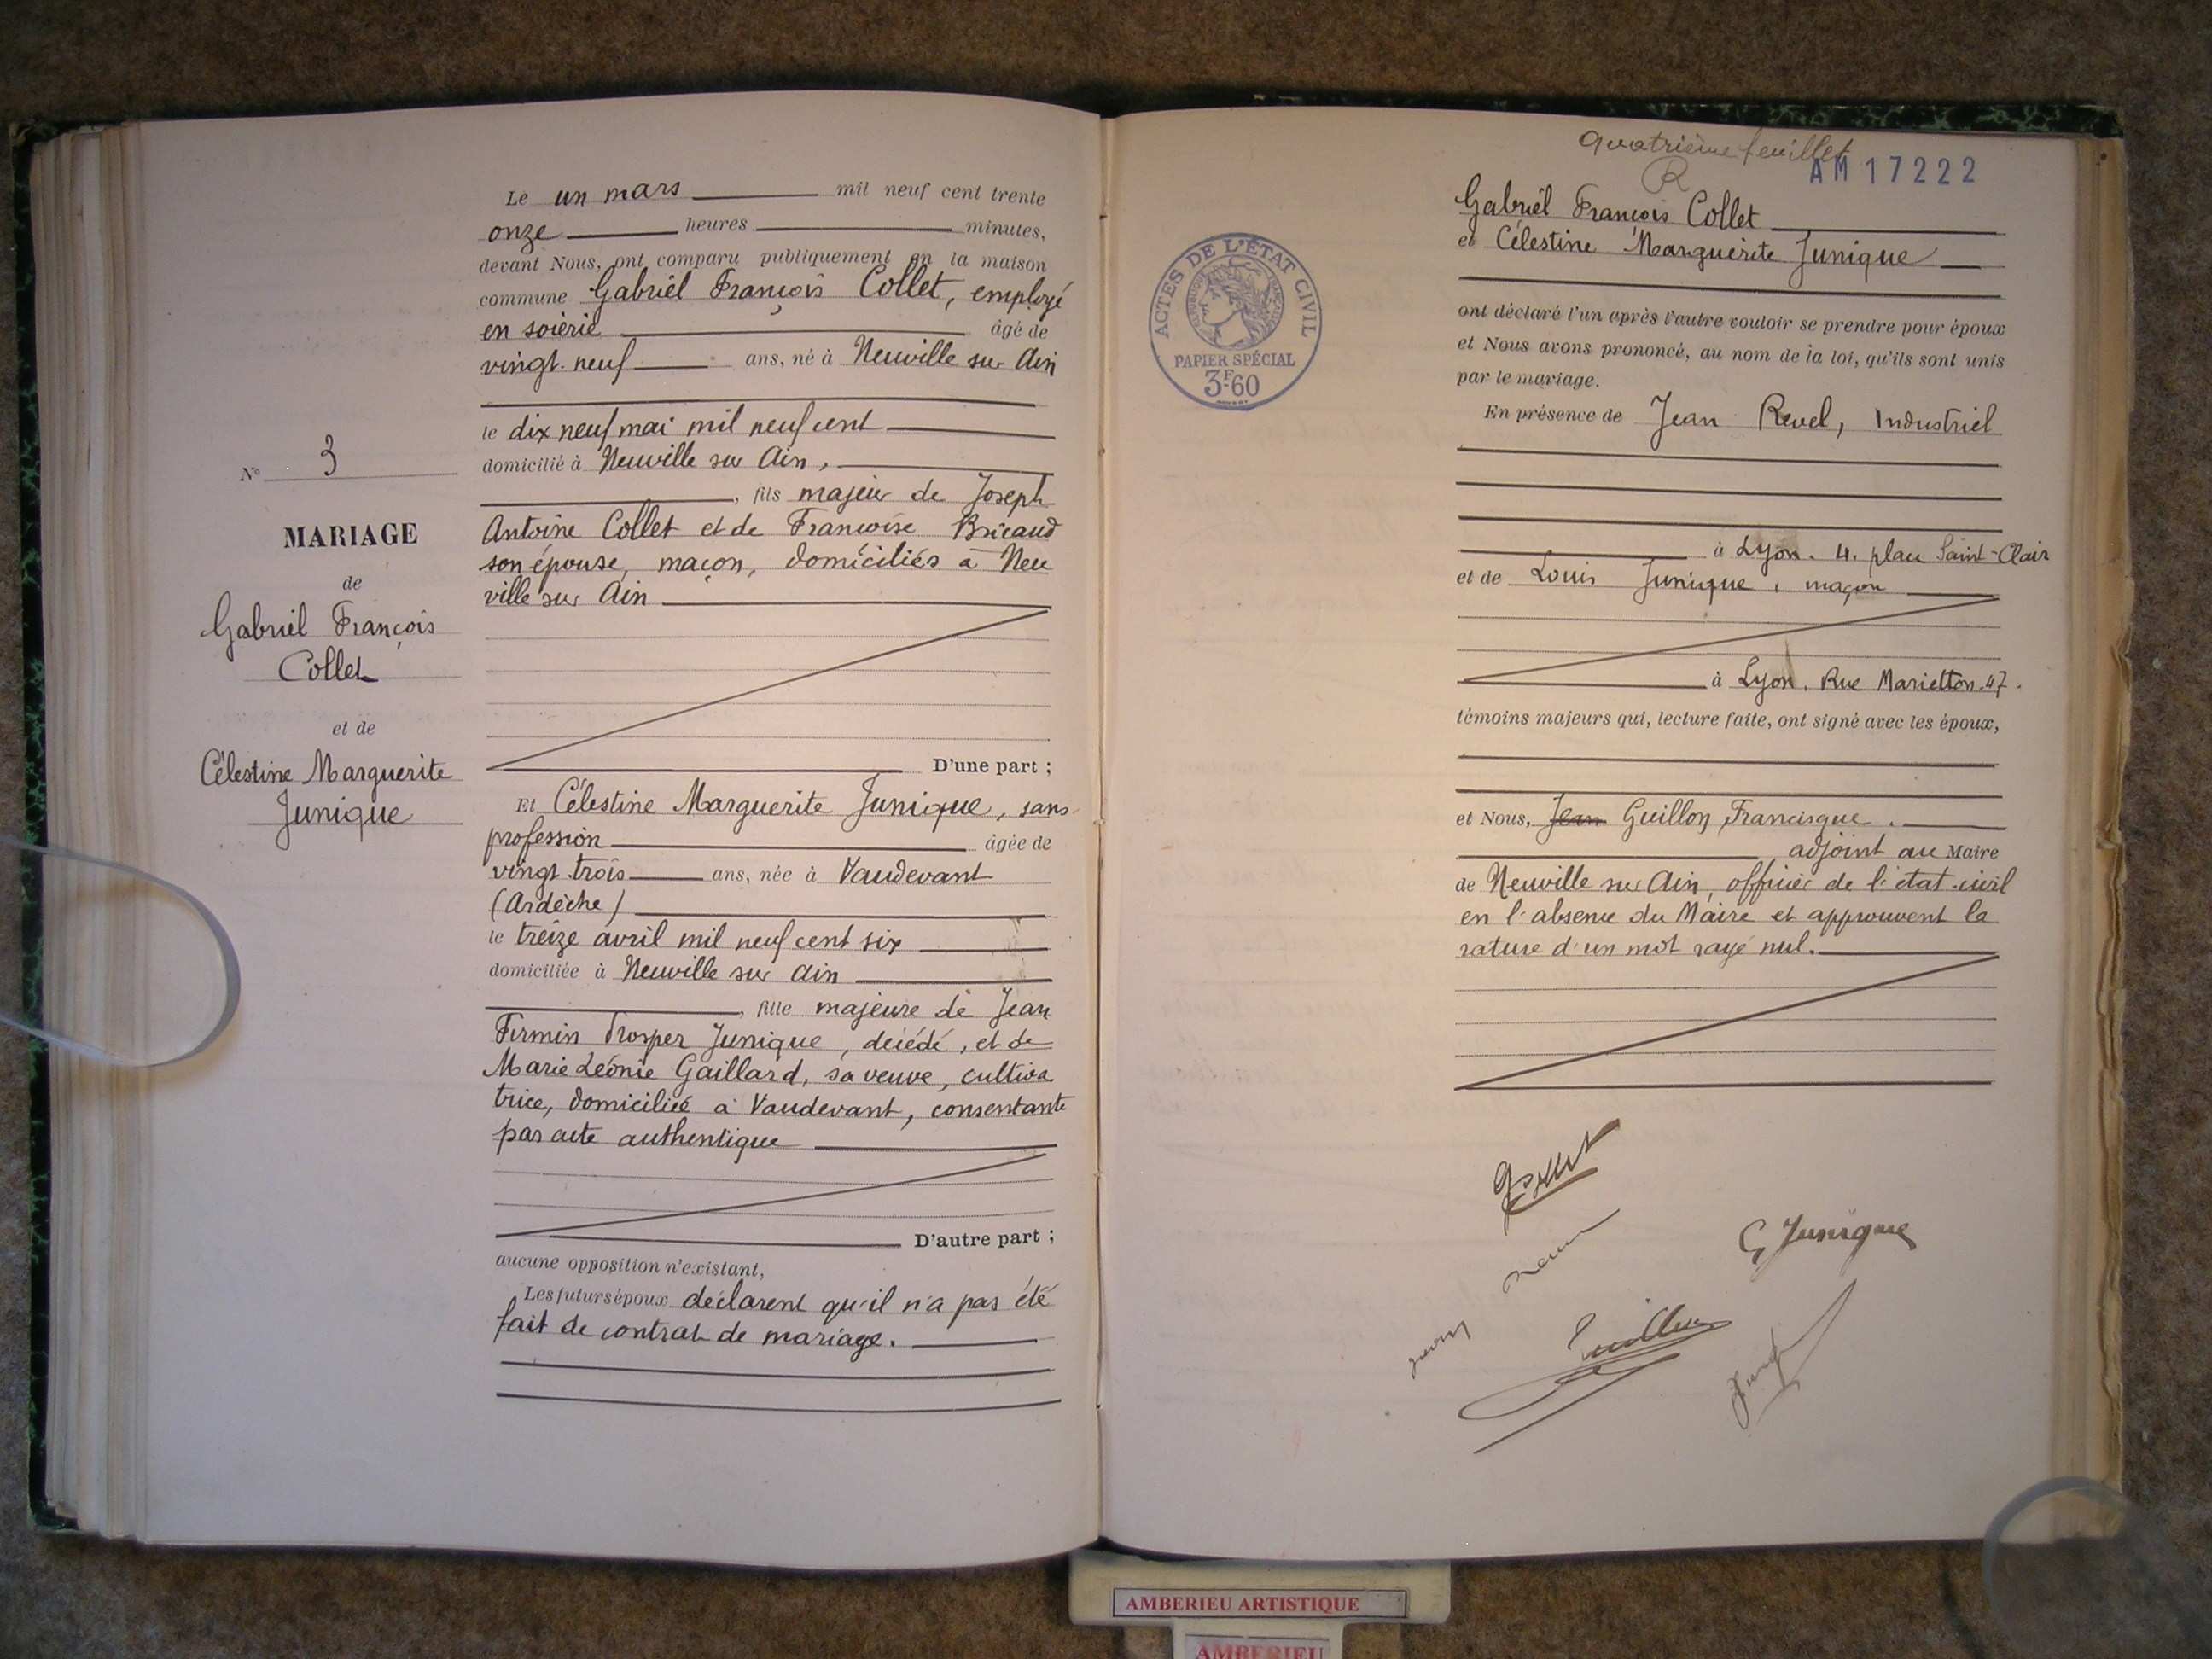 Le un mars mil neuf cent trente
onze heures minutes,
devant Nous, ont comparu publiquement en la maison
commune Gabriel François Collet, employé
en soierie âgé de
vingt-neuf ans, né à Neuville sur Ain
le dix neuf mai mil neuf cent
domicilié à Neuville sur Ain,
, fils majeur de Joseph
Antoine Collet et de Françoise Bricaud
son épouse, maçon, domiciliés à Neu
ville sur Ain
D'une part ;
Et Célestine Marguerite Junique, sans
profession âgée de
vingt-trois ans, née à Vaudevant
(Ardèche)
le treize avril mil neuf cent six
domiciliée à Neuville sur Ain
, fille majeure de Jean
Firmin Prosper Junique, décédé, et de
Marie Léonie Gaillard, sa veuve, cultiva
trice, domiciliée à Vaudevant, consentante
par acte authentique
D'autre part ;
aucune opposition n'existant,
Les futurs époux déclarent qu'il n'a pas été
fait de contrat de mariage.
N° 3
MARIAGE
de
Gabriel François
Collet
et de
Célestine Marguerite
Junique
quatrième feuillet
R
AM 17222
Gabriel François Collet
et Célestine Marguerite Junique
ACTES DE L'ÉTAT CIVIL
PAPIER SPÉCIAL
3F.60
ont déclaré l'un après l'autre vouloir se prendre pour époux
et Nous avons prononcé, au nom de la loi, qu'ils sont unis
par le mariage.
En présence de Jean Revel, Industriel
à Lyon. 4. place Saint-Clair
et de Louis Junique, maçon
à Lyon. Rue Marietton. 47.
témoins majeurs qui, lecture faite, ont signé avec les époux,
et Nous, Jean Guillon Francisque.
adjoint au Maire
de Neuville sur Ain, officier de l'état-civil
en l'absence du Maire et approuvent la
rature d'un mot rayé nul.
G Collet
C Junique
Guillon
AMBERIEU ARTISTIQUE
AMBERIEU